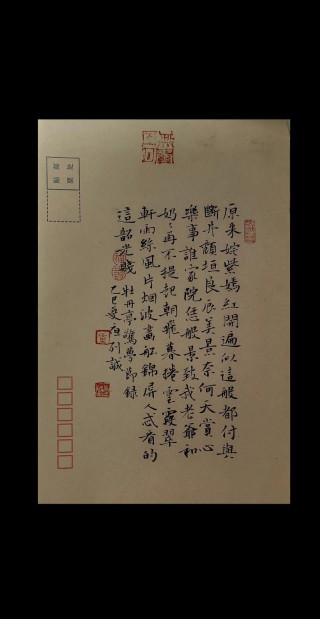 原来姹紫嫣红開遍似這般都付與
断井頹垣良辰美景奈何天賞心
樂事誰家院恁般景致我老爺和
奶々再不提起朝飛暮捲雲霞翠
軒雨絲風片烟波畫船錦屏人忒看的
這韶光賤 牡丹亭驚夢節録
乙巳夏